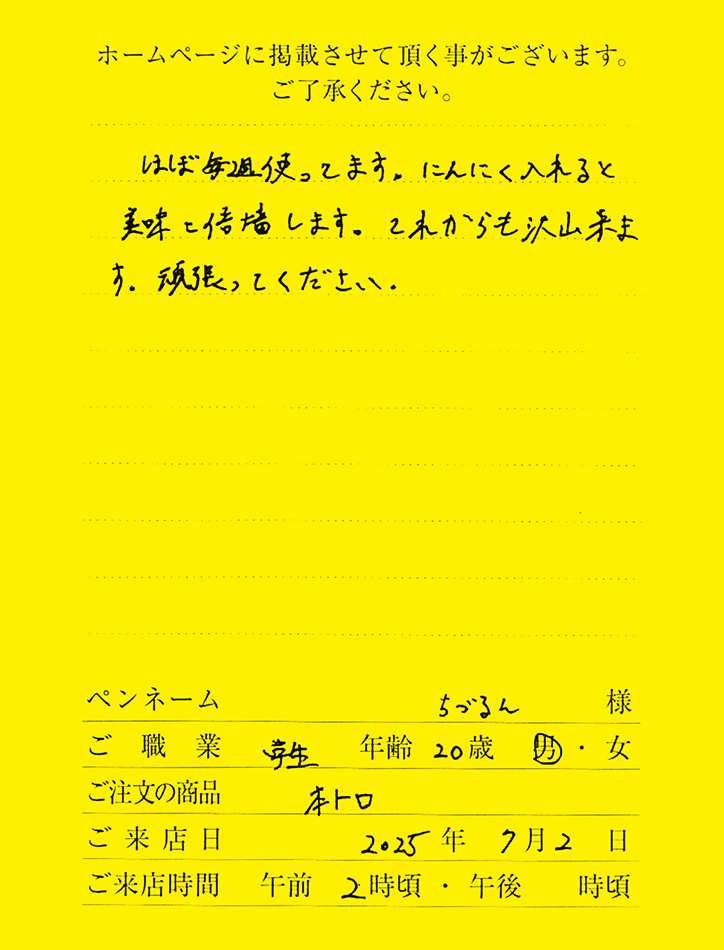 ホームページに掲載させて頂く事がございます。
ご了承ください。
ほぼ毎週使ってます。にんにく入れると
美味さ倍増します。これからも沢山来ま
す。頑張ってください。
ペンネーム ちづるん 様
ご職業 学生 年齢 20歳 男・女
ご注文の商品 本トロ
ご来店日 2025年 7月2日
ご来店時間 午前 2時頃・午後 時頃